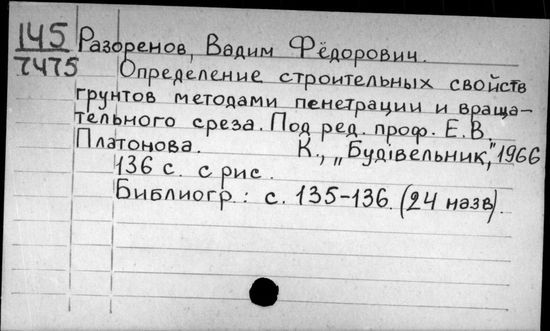 145 Разоренов, Вадим Фёдорович.
7475 Определение строительных свойств
грунтов методами пенетрации и враща-
тельного среза. Под ред. проф. Е.В.
Платонова. К., „Будiвельник", 1966
136 с. с рис.
Библиогр.: с. 135-136. (24 назв).